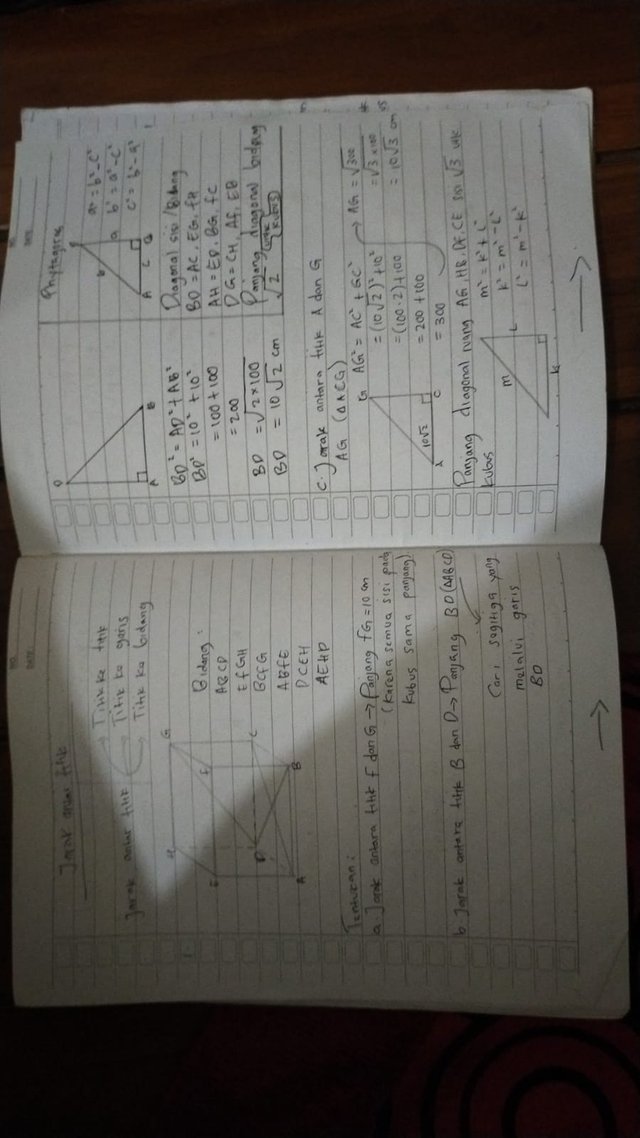 NO.
DATE
Jarak antar titik
Jarak antar titik
→ Titik ke titik
→ Titik ke garis
→ Titik ke bidang
H
G
E
F
D
C
A
B
Bidang :
ABCD
EFGH
BCFG
ABFE
DCEH
AEHD
Tentukan :
a Jarak antara titik F dan G → Panjang FG = 10 cm
(karena semua sisi pada
kubus sama panjang)
b Jarak antara titik B dan D → Panjang BD (ΔABCD)
Cari segitiga yang
melalui garis
BD
NO.
DATE
D
A
B
BD² = AD² + AB²
BD² = 10² + 10²
= 100 + 100
= 200
BD = √2 × 100
BD = 10√2 cm
Phytagoras
b
a
A
c
B
a² = b² - c²
b² = a² - c²
c² = b² - a²
Diagonal sisi / Bidang
BD = AC, EG, FH
AH = ED, BG, FC
DG = CH, AF, EB
Panjang diagonal bidang
√2
(kubus)
c. Jarak antara titik A dan G
AG (ΔACG)
G
A
10√2
C
AG² = AC² + GC²
= (10√2)² + 10²
= (100·2) + 100
= 200 + 100
= 300
→ AG = √300
= √3 × 100
= 10√3 cm
Panjang diagonal ruang AG, HB, DF, CE sisi √3 utk
kubus
m
L
k
m² = k² + L²
k² = m² - L²
L² = m² - k²